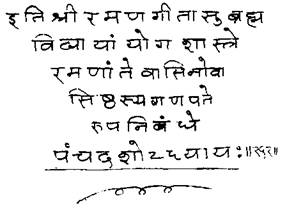 इति श्री रमणगीतासु ब्रह्म
विद्यायां योगशास्त्रे
रमणांतेवासिनोवा
सिष्ठस्यगणपते
रुपनिबंधे
पंचदशोऽध्यायः॥